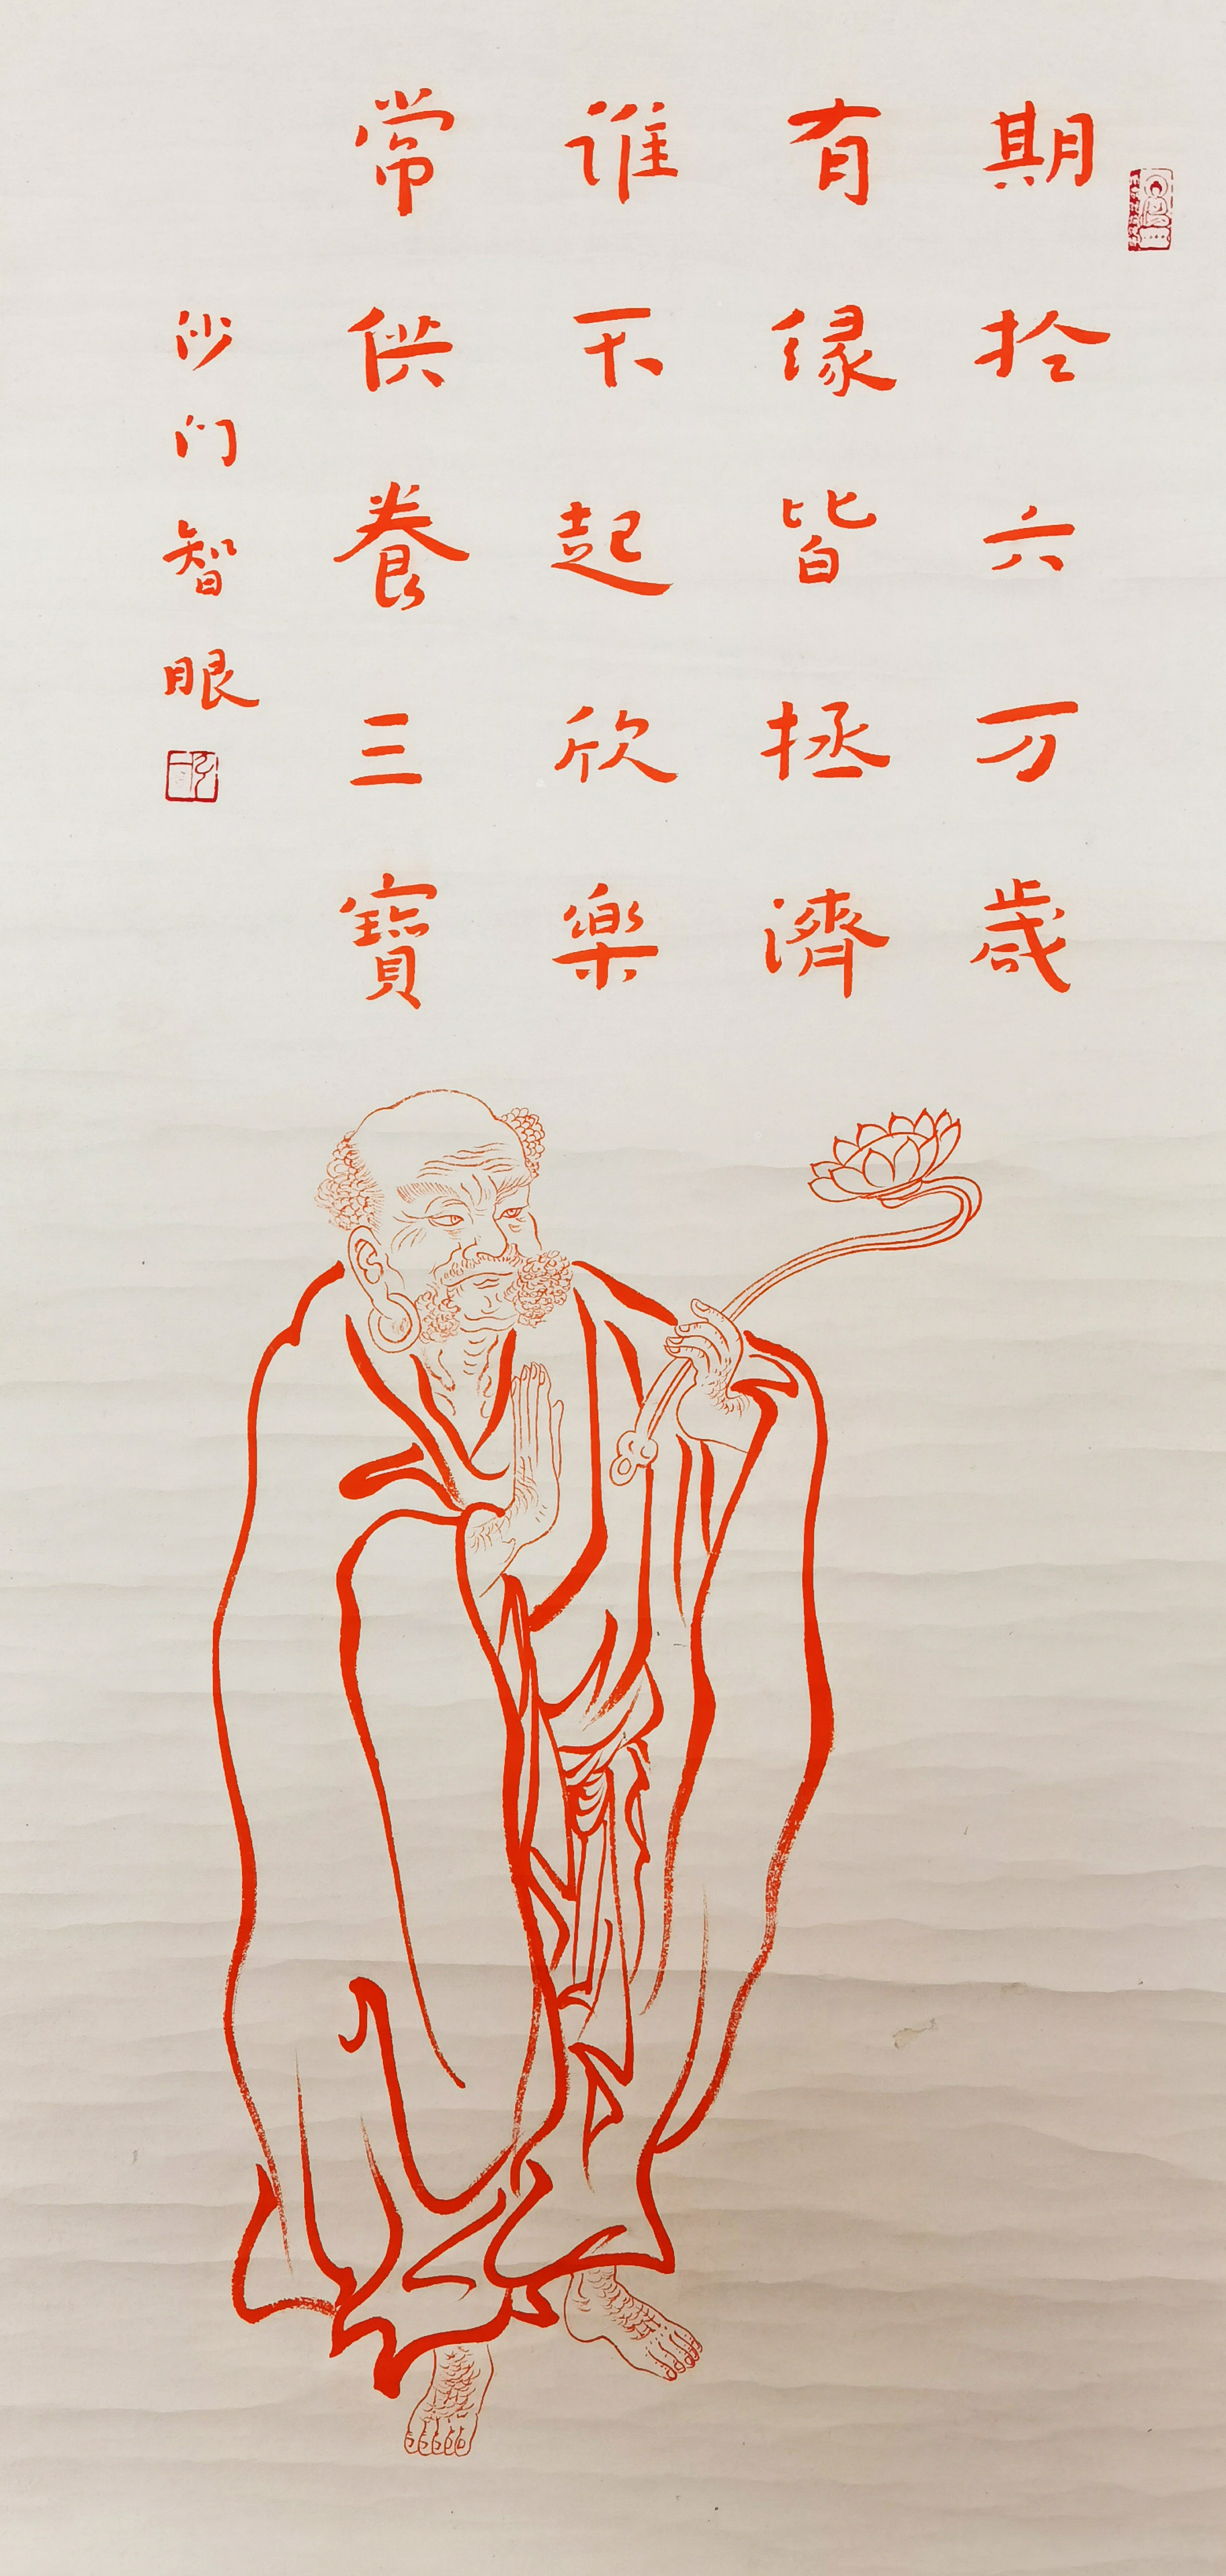 期於六万歲
有缘皆拯濟
谁不起欣樂
常供養三寶
沙门智眼